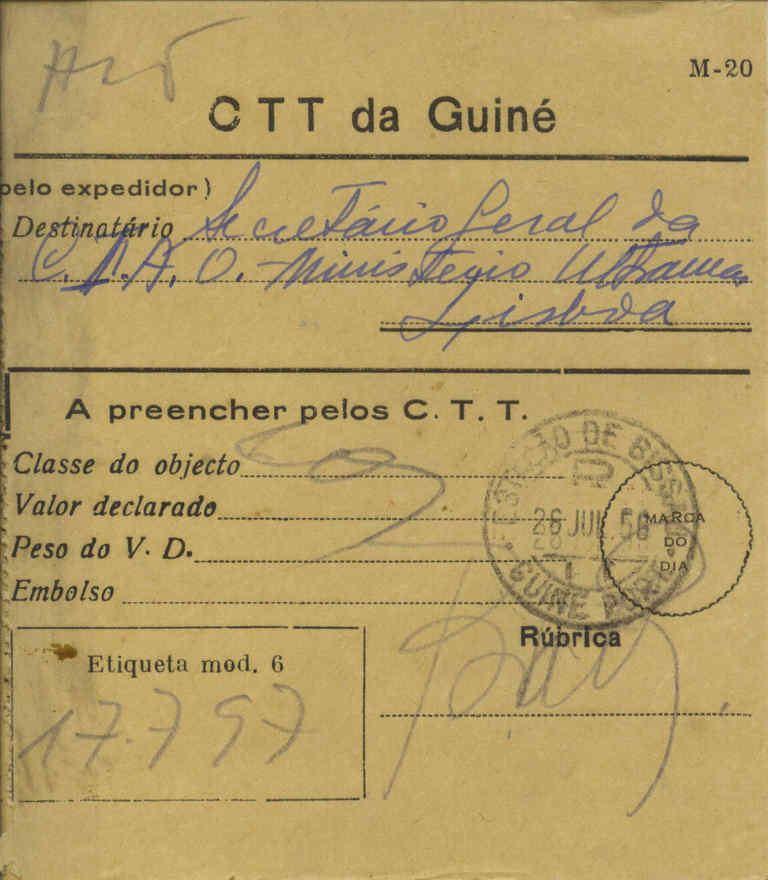 M-20
CTT da Guiné
pelo expedidor)
Destinatário Secretário Geral da
C.P.A.O. - Ministério Ultramar
Lisboa
A preencher pelos C. T. T.
Classe do objecto
Valor declarado
Peso do V. D.
Embolso
ESTAÇÃO DE
26 JUL. 56
GUINÉ
MARCA
DO
DIA
Rúbrica
Etiqueta mod. 6
17.797